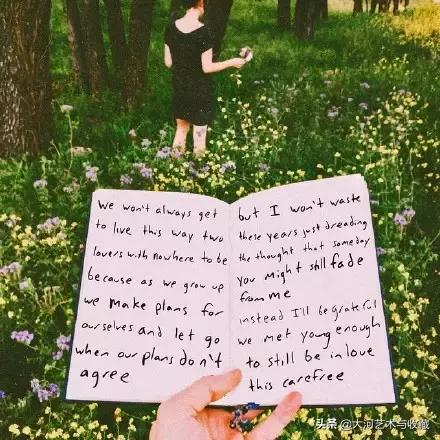 we won't always get
to live this way two
lovers with nowhere to be
because as we grow up
we make plans for
ourselves and let go
when our plans don't
agree
but I won't waste
these years just dreading
the thought that someday
you might still fade
from me
instead I'll be grateful
we met young enough
to still be in love
this carefree
头条 @大河艺术与收藏